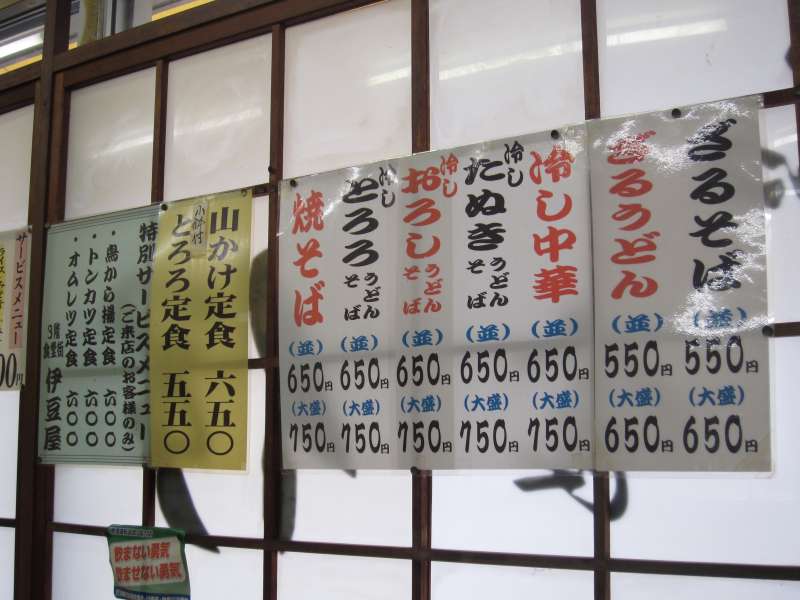 ざるそば
(並)
550円
(大盛)
650円
ざるうどん
(並)
550円
(大盛)
650円
冷し中華
(並)
650円
(大盛)
750円
冷し
たぬき
うどん
そば
(並)
650円
(大盛)
750円
冷し
おろし
うどん
そば
(並)
650円
(大盛)
750円
冷し
とろろ
うどん
そば
(並)
650円
(大盛)
750円
焼そば
(並)
650円
(大盛)
750円
山かけ定食 六五〇
小鉢付
とろろ定食 五五〇
特別サービスメニュー
(ご来店のお客様のみ)
・鳥から揚定食 六〇〇
・トンカツ定食 六〇〇
・オムレツ定食 六〇〇
9階
食堂街
伊豆屋
サービスメニュー
00円
飲まない勇気
飲ませない勇気